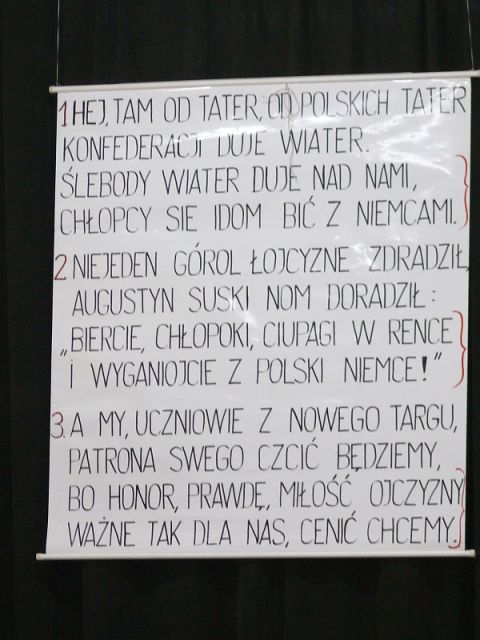 1 HEJ, TAM OD TATER, OD POLSKICH TATER
KONFEDERACJI DUJE WIATER.
ŚLEBODY WIATER DUJE NAD NAMI,
CHŁOPCY SIE IDOM BIĆ Z NIEMCAMI.
2 NIEJEDEN GÓROL ŁOJCYZNE ZDRADZIŁ,
AUGUSTYN SUSKI NOM DORADZIŁ:
„BIERCIE, CHŁOPOKI, CIUPAGI W RENCE
I WYGANIOJCIE Z POLSKI NIEMCE!"
3. A MY, UCZNIOWIE Z NOWEGO TARGU,
PATRONA SWEGO CZCIĆ BĘDZIEMY,
BO HONOR, PRAWDĘ, MIŁOŚĆ OJCZYZNY
WAŻNE TAK DLA NAS, CENIĆ CHCEMY.